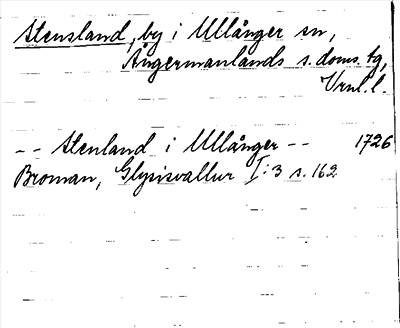 Stensland, by i Ullånger sn,
Ångermanlands s. doms. tg,
Vrnl. l.
-- Stenland i Ullånger -- 1726
Broman, Glysisvallur I:3 s. 162